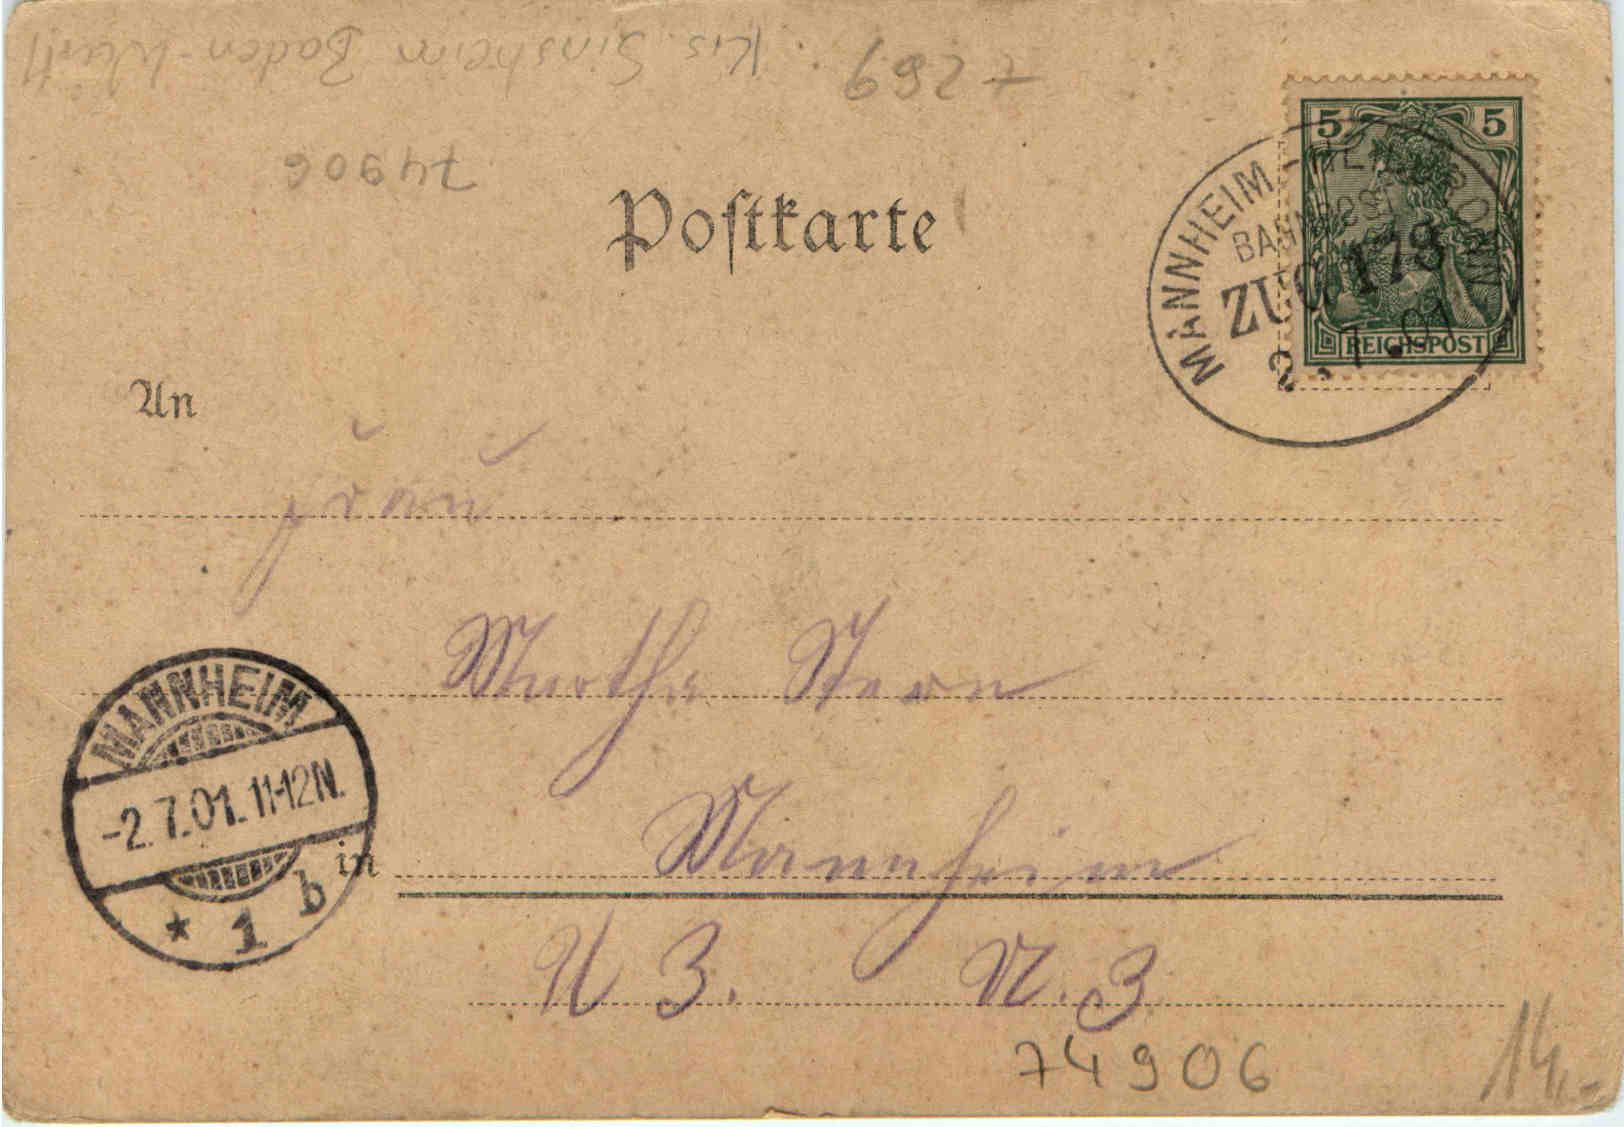 Krs. Sinsheim Baden-Württ
7269
74906
Postkarte
5 5
REICHSPOST
MANNHEIM - HEILBRONN
BAHNPOST
ZUG 173
2.7.01
An
Frau
Martha Stern
MANNHEIM
-2.7.01.11-12N.
* 1 b
in
Mannheim
U 3. N. 3
74906
14,-